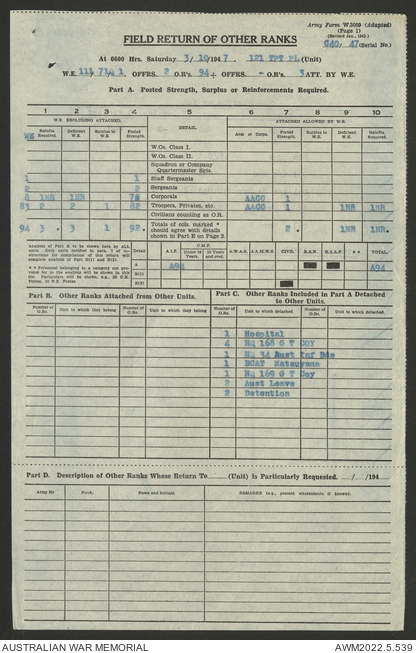 Army Form W.3009 (Adapted)
(Page 1)
FIELD RETURN OF OTHER RANKS
G40/ 47 (Serial No.)
At 0600 Hrs. Saturday 3/10/1947. 121 TPT PL (Unit)
W.E. 111 71 1 OFFRS. 2 O.R's. 94 + OFFRS. - O.R's. 3 ATT. BY W.E.
Part A. Posted Strength, Surplus or Reinforcements Required.
1 2 3 4 5 6 7 8 9 10
W.E. EXCLUDING ATTACHED. DETAIL. ATTACHED ALLOWED BY W.E.
WE Reinfts. Required. Deficient W.E. Surplus to W.E. Posted Strength. Arm or Corps. Posted Strength. Surplus to W.E. Deficient W.E. Reinfts. Required.
W.Os. Class I.
W.Os. Class II.
Squadron or Company
Quartermaster Sgts.
1 1 Staff Sergeants
2 2 Sergeants
8 1NR 1NR Corporals AACC 1
83 2 2 1 82 Troopers, Privates, etc. AACC 1 1NR 1NR
Civilians counting as O.R.
94 3 * 3 1 92 * Totals of cols. marked * should agree with details shown in Part E on Page 2. 2 * 1NR 1NR
Analysis of Part A to be shown here by ALL units. Detail A.I.F. C.M.F. A.W.A.S. A.A.M.W.S. CIVIL R.A.N. R.A.A.F. * * TOTAL.
Under 19 Years 19 Years and over.
A A94 A94
B(1)
B(2)
Part B. Other Ranks Attached from Other Units. Part C. Other Ranks Included in Part A Detached to Other Units.
Number of O.Rs. Unit to which they belong Number of O.Rs. Unit to which they belong Number of O.Rs. Unit to which attached. Number of O.Rs. Unit to which attached.
1 Hospital
4 Hq 168 G T Coy
1 Hq 34 Aust Inf Bde
1 BCAT Matsuyama
1 Hq 169 G T Coy
2 Aust Leave
2 Detention
Part D. Description of Other Ranks Whose Return To (Unit) is Particularly Requested. / /194
Army No. Rank. Name and Initials. REMARKS (e.g., present whereabouts if known).
AUSTRALIAN WAR MEMORIAL AWM2022.5.539